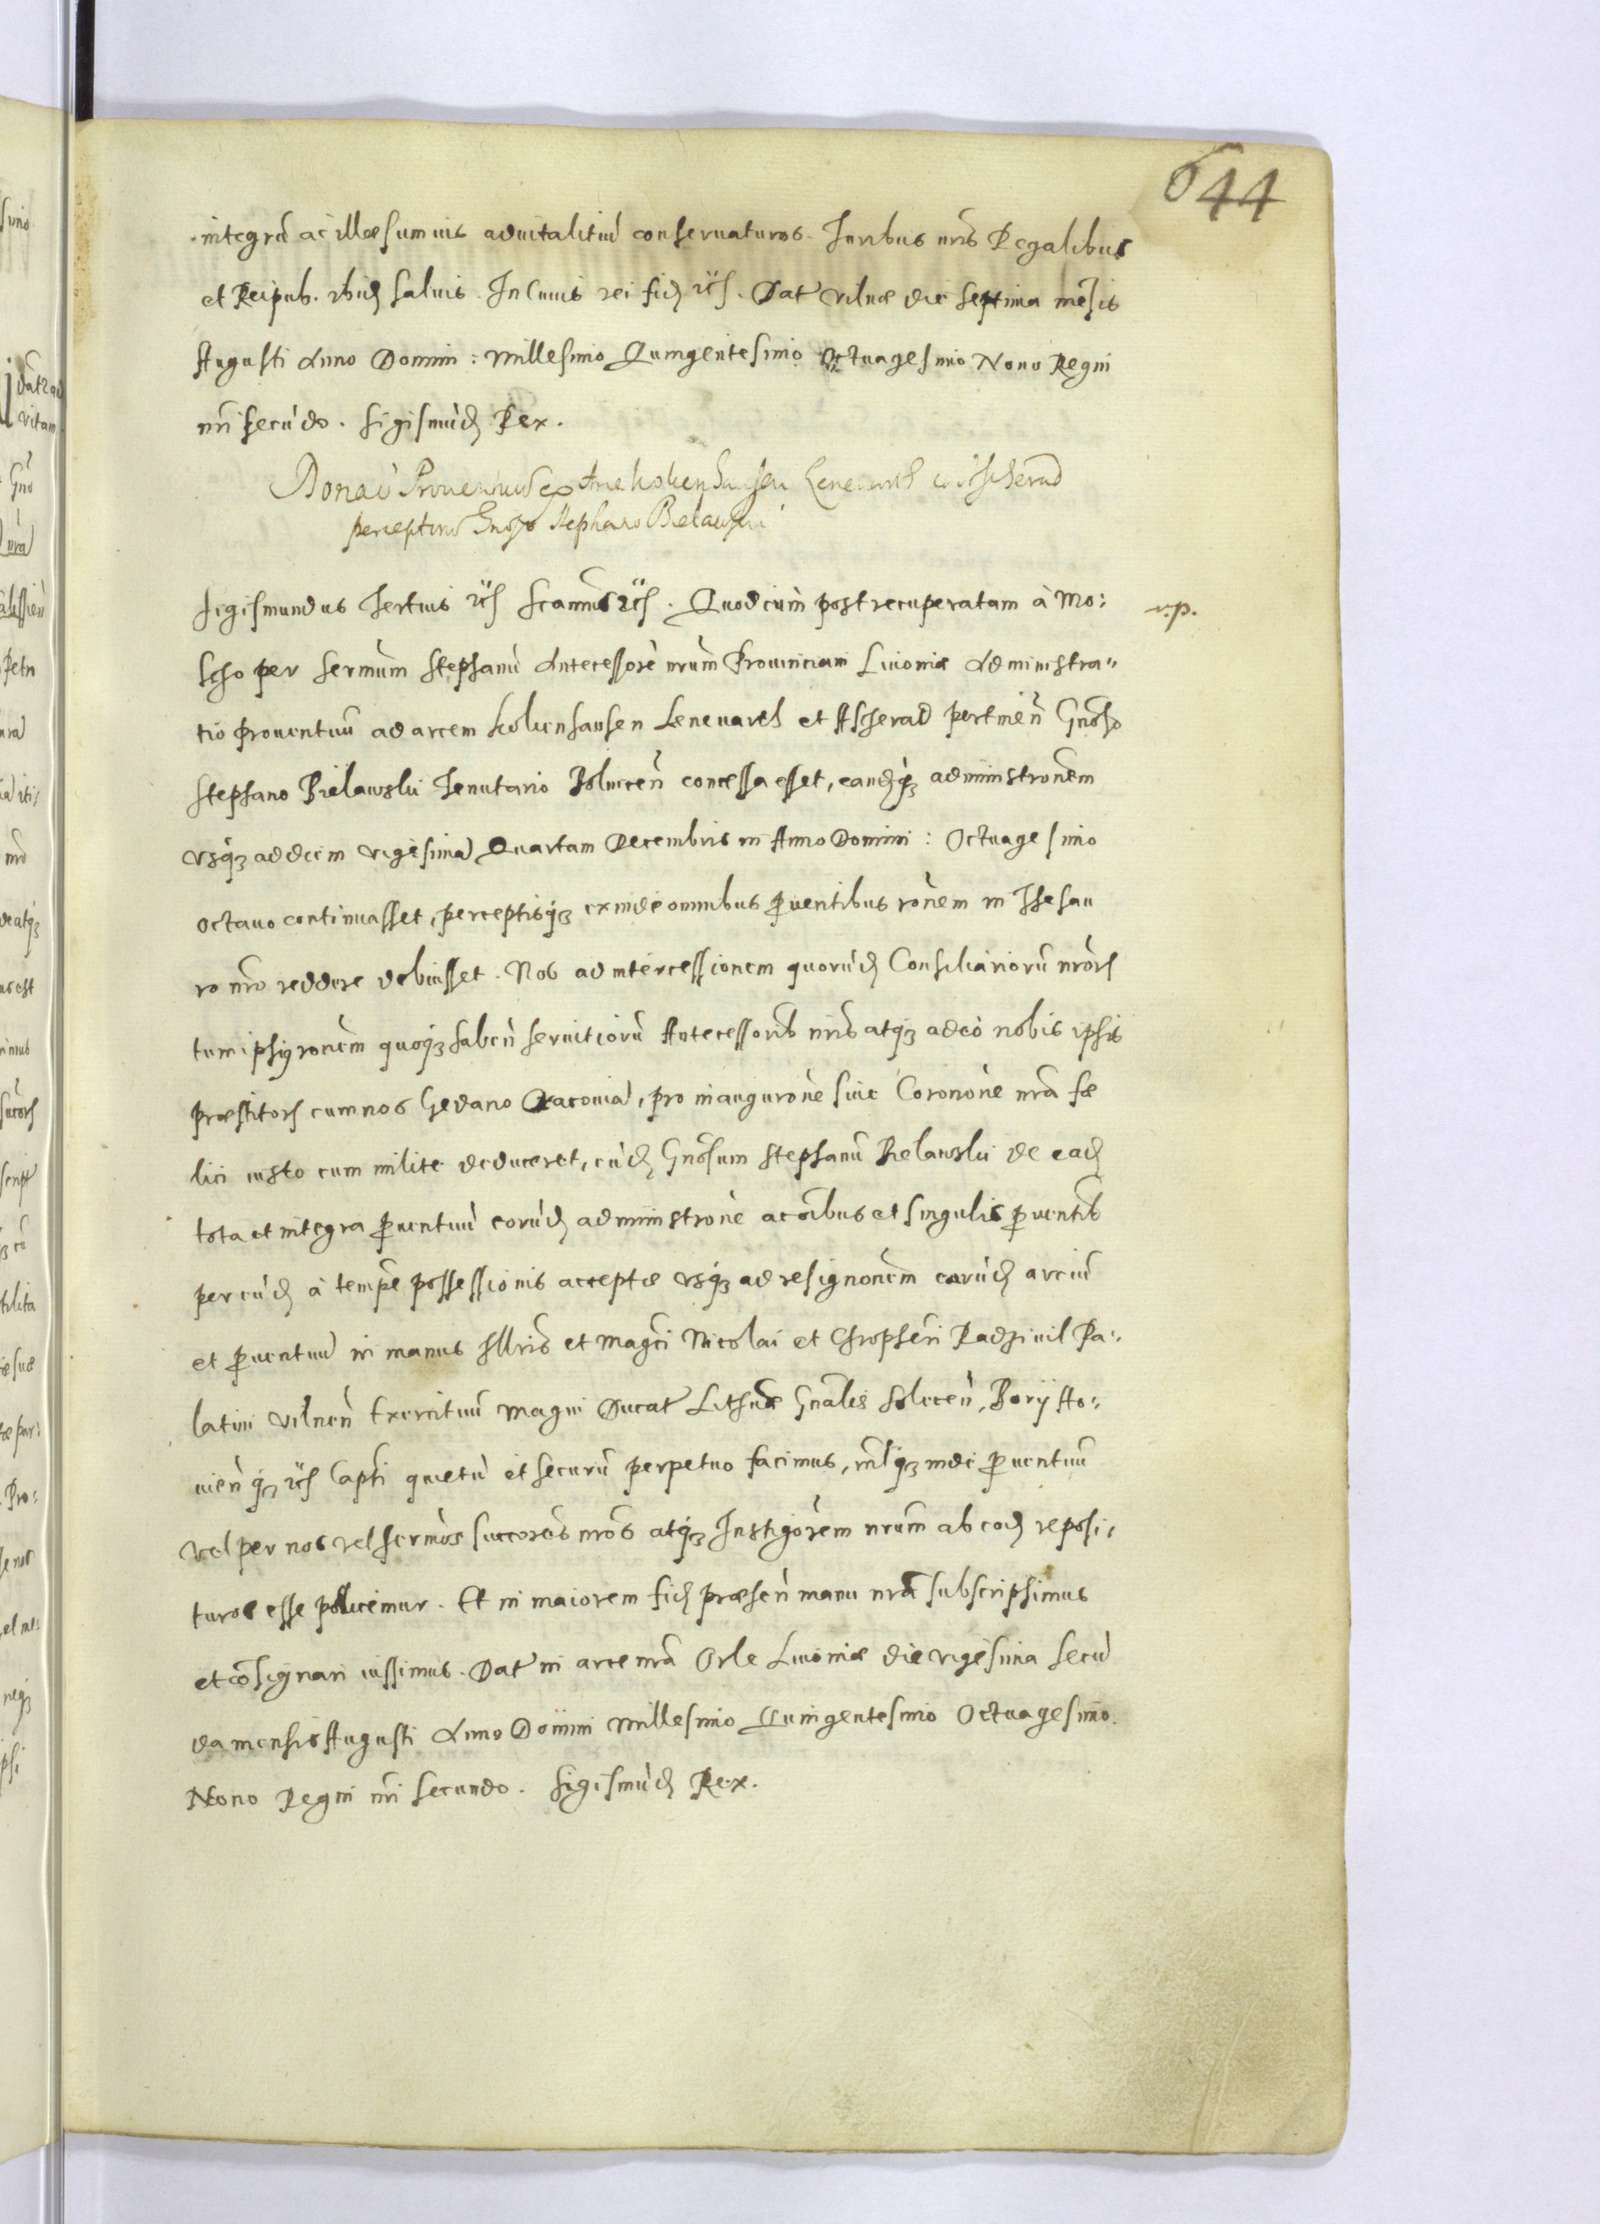 644
integrũ ac illæsum ius advitalitiũ conservaturos. Iuribus nr̃is Regalibus
et Reipub. ibid salvis. In cuius rei fid etc. Dat Vilnæ die septima mēsis
Augusti Anno Domini: Millesimo Quingentesimo Octuagesimo Nono Regni
nr̃i secũdo. Sigismũd Rex.
Donaõ Proventuũ ex Arce Kokenhausen Lenevard et Ascherad
perceptorũ Gnoso Stephano Bielawski
Sigismundus Tertius etc Scamus etc. Quod cum post recuperatam à Mo:
v.p.
scho per Sermum Stephanũ Antecessorẽ nrũm Provinciam Livoniæ Administra-
tio Proventuũ ad arcem Kokenhausen Lenevard et Ascherad pertineñ Gnoso
Stephano Bielawski Tenutario concessa esset, eandq3 administronem
vsq3 ad diem vigesimã Quartam Decembris in Anno Domini: Octuagesimo
octavo continuasset, perceptisq3 exinde omnibus pventibus ronem in Thesau
ro nr̃o reddere debuisset. Nos ad intercessionem quorũd Consiliariorũ nrõr
tum ipsi ronem quoq3 habeñ servitiorũ Antecessorib nr̃is atq3 adeò nobis ipsis
præstitor cum nos Gedano Cracoviã, pro inaugurone sive Coronone nr̃a fæ
lici iusto cum milite deduceret, eũd Gnosum Stephanũ Bielawski de ead
tota et integra pventuũ eorũd administrone ac oibus et singulis pventib
per eũd à tempe possessionis acceptæ vsq3 ad resignonem earũd arciũ
et pventuũ in manus Illris et Magci Nicolai et Chrophsri Radziwil Pa-
latini Vilneñ Exercituũ Magni Ducat Lithuæ Gnalis Soleceñ, Borijsso-
vieñ q3 etc Capti quietũ et securũ perpetuo facimus, nilq3 inde pventuũ
vel per nos vel sermos succores nr̃os atq3 Instigorem nrũm ab eod reposi-
turos esse pollicemur. Et in maiorem fid præseñ manu nr̃a subscripsimus
et cõsignari iussimus. Dat in arce nr̃a Orle Livoniæ die vigesima secũ
da mensis Augusti Anno Domini Millesimo Quingentesimo Octuagesimo
Nono Regni nr̃i secundo. Sigismũd Rex.